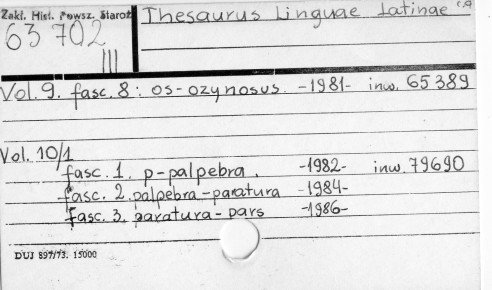 Zakł. Hist. Powsz. Staroż
Thesaurus Linguae Latinae
63 702
III
Vol. 9. fasc. 8: os-ozynosus. -1981- inw. 65389
Vol. 10/1
fasc. 1. p-palpebra. -1982- inw. 79690
fasc. 2. palpebra-paratura -1984-
fasc. 3. paratura-pars -1986-
DUJ 897/73. 15000